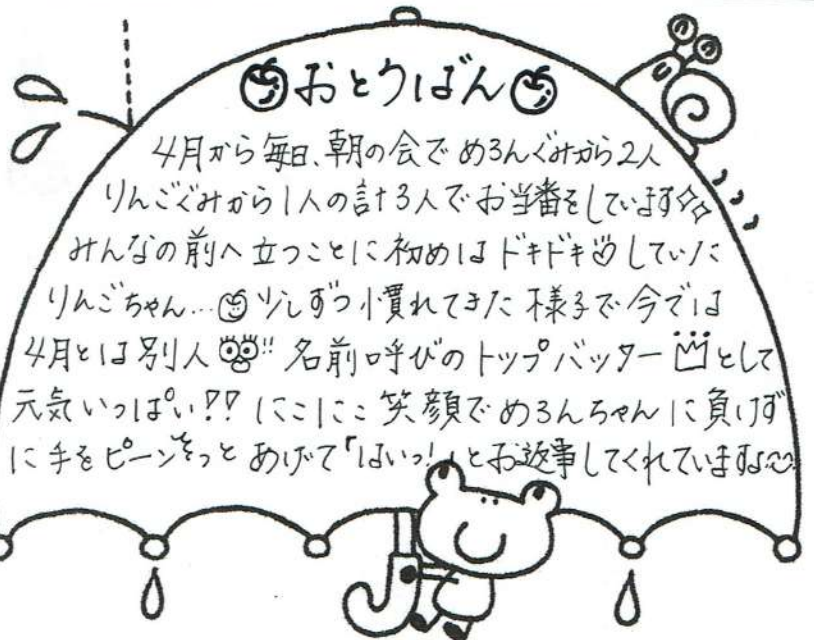 おとうばん
4月から毎日、朝の会で めろんぐみから2人
りんごぐみから1人の計3人でお当番をしています
みんなの前へ立つことに初めは ドキドキしていた
りんごちゃん… 少しずつ慣れてきた様子で今では
4月とは別人!! 名前呼びのトップバッターとして
元気いっぱい!! にこにこ笑顔で めろんちゃんに負けず
に手をピーンそっと あげて「はいっ!」とお返事してくれていますよ